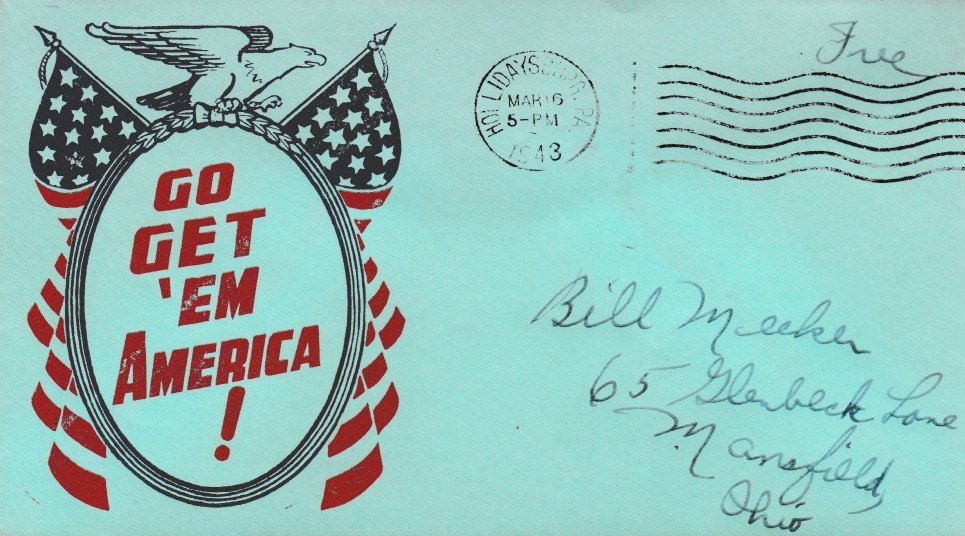 GO
GET
'EM
AMERICA
!
HOLLIDAYSBURG, PA
MAR 6
5-PM
1943
Free
Bill Meeker
65 Glenbeck Lane
Mansfield,
Ohio